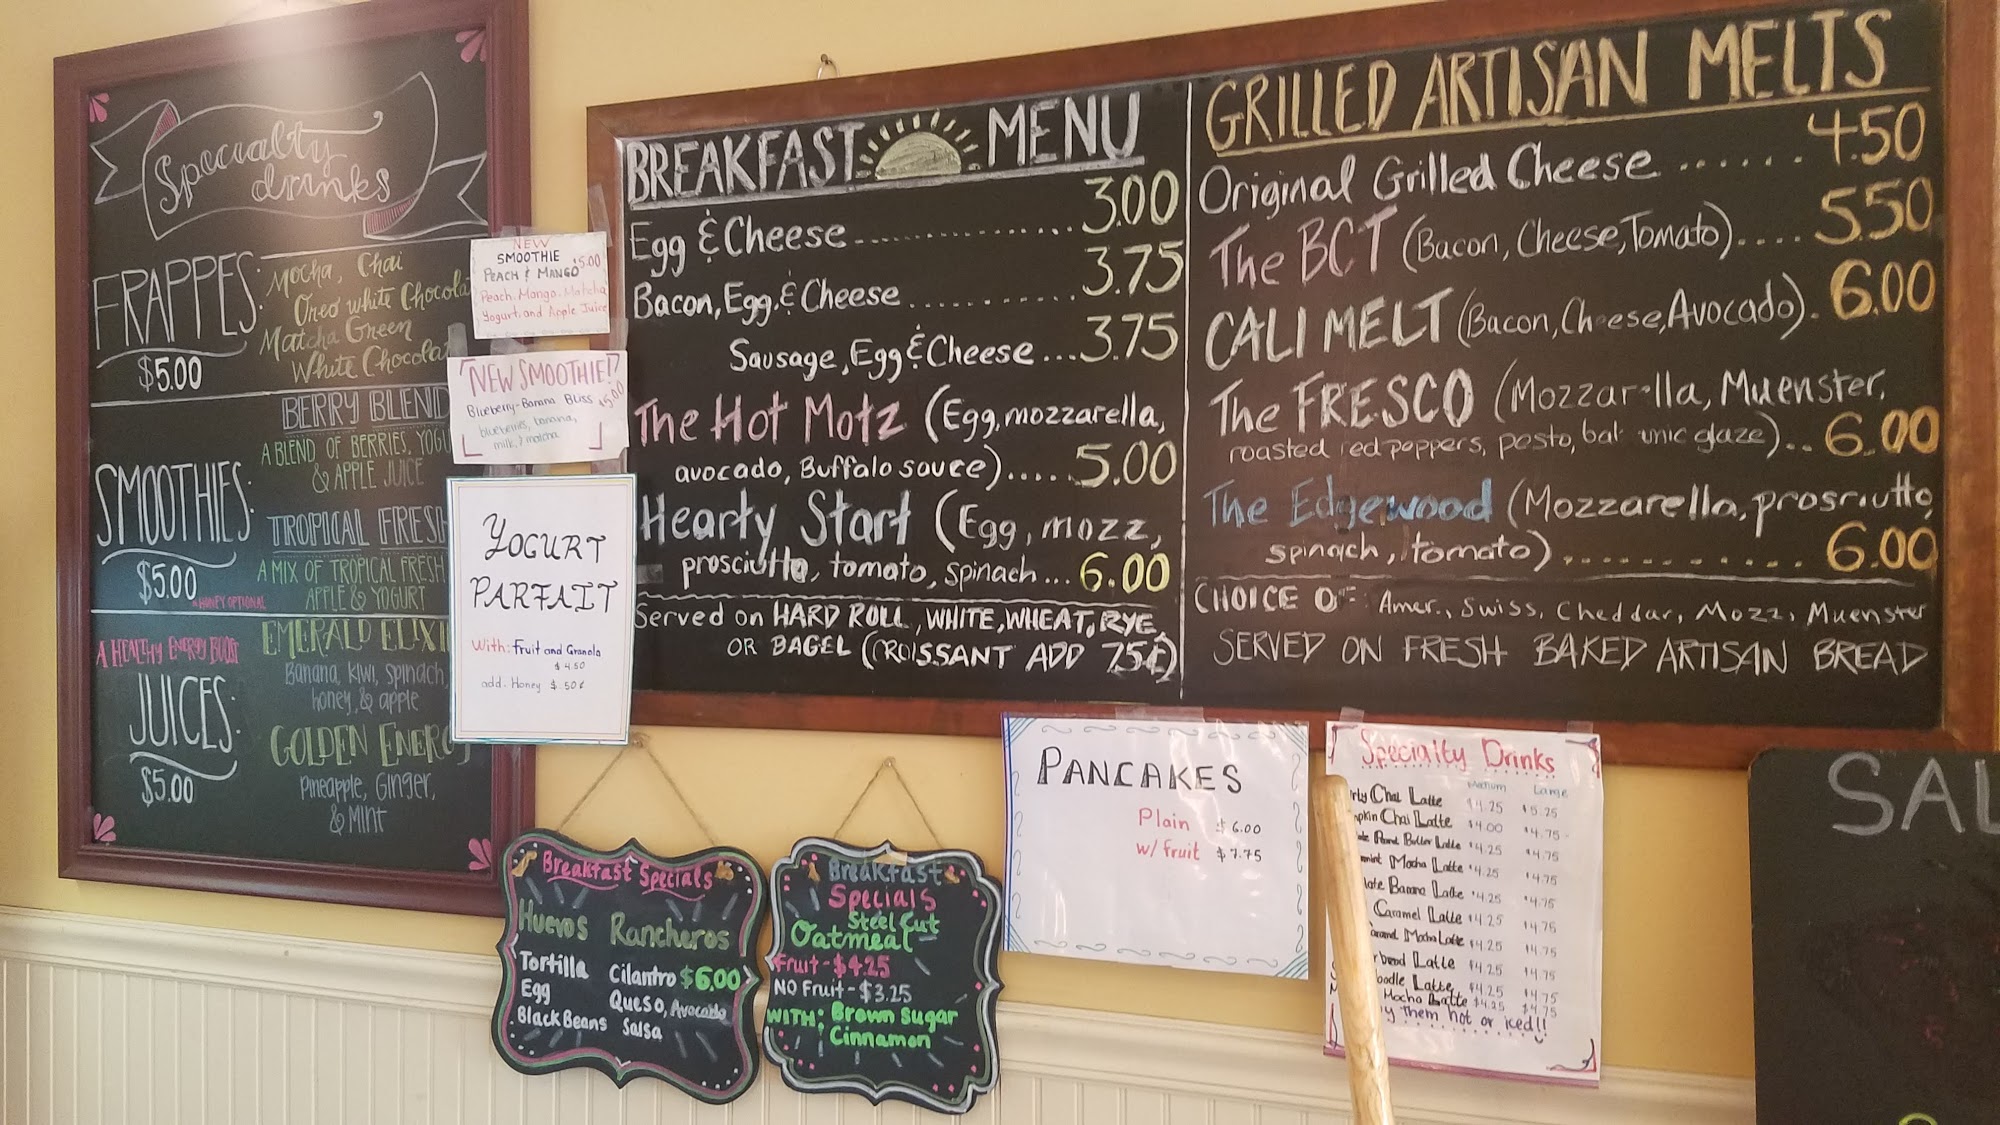 Specialty
drinks
FRAPPES:
$5.00
Mocha, Chai
Oreo White
Matcha Green
White
SMOOTHIES:
$5.00
HONEY OPTIONAL
BERRY BLEND
A BLEND OF BERRIES,
& APPLE JUICE
TROPICAL FRESH
A MIX OF TROPICAL FRESH
APPLE & YOGURT
A HEALTHY ENERGY BOOST
JUICES:
$5.00
EMERALD
Banana, kiwi, spinach,
honey, & apple
GOLDEN ENERGY
Pineapple, Ginger,
& Mint
NEW
SMOOTHIE $5.00
PEACH & MANGO
Peach, Mango, Matcha
Yogurt, and Apple Juice
NEW SMOOTHIE!?
Blueberry-Banana Bliss $5.00
blueberries, banana,
milk, & matcha
YOGURT
PARFAIT
With: Fruit and Granola
$4.50
add. Honey $.50¢
BREAKFAST MENU
Egg & Cheese................ 3.00
Bacon, Egg, & Cheese............ 3.75
Sausage, Egg & Cheese ... 3.75
The Hot Motz (Egg, mozzarella,
avocado, Buffalo sauce)..... 5.00
Hearty Start (Egg, mozz,
prosciutto, tomato, spinach... 6.00
Served on HARD ROLL, WHITE, WHEAT, RYE
OR BAGEL (CROISSANT ADD 75¢)
GRILLED ARTISAN MELTS
Original Grilled Cheese ...... 4.50
The BCT (Bacon, Cheese, Tomato).... 5.50
CALI MELT (Bacon, Cheese, Avocado). 6.00
The FRESCO (Mozzarella, Muenster,
roasted red peppers, pesto, bal unic glaze).. 6.00
The Edgewood (Mozzarella, prosciutto,
spinach, tomato).......... 6.00
CHOICE OF: Amer., Swiss, Cheddar, Mozz, Muenster
SERVED ON FRESH BAKED ARTISAN BREAD
Breakfast Specials
Huevos Rancheros
Tortilla Cilantro $6.00
Egg Queso, Avocado
Black Beans Salsa
Breakfast
Specials
Steel Cut
Oatmeal
Fruit - $4.25
NO Fruit - $3.25
WITH: Brown Sugar
Cinnamon
PANCAKES
Plain $6.00
w/ fruit $7.75
Specialty Drinks
Medium Large
Chai Latte $4.25 $5.25
Chai Latte $4.00 $4.75
Butter Latte $4.25 $4.75
Mocha Latte $4.25 $4.75
Banana Latte $4.25 $4.75
Caramel Latte $4.25 $4.75
Mocha Latte $4.25 $4.75
Latte $4.25 $4.75
Latte $4.25 $4.75
Mocha Latte $4.25 $4.75
them hot or iced!!
SAL